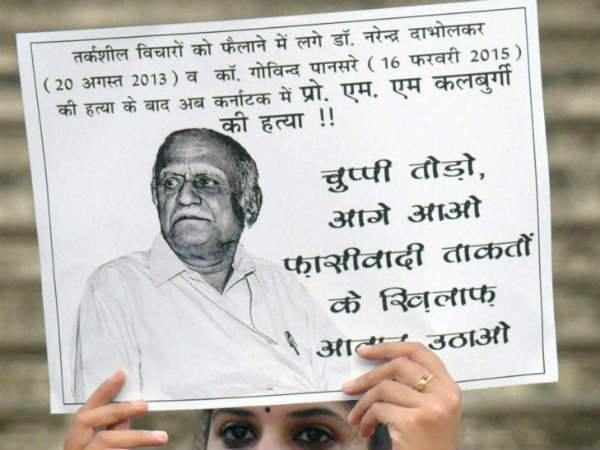 तर्कशील विचारों को फैलाने में लगे डॉ. नरेन्द्र दाभोलकर
(20 अगस्त 2013) व कॉ. गोविन्द पानसरे (16 फरवरी 2015)
की हत्या के बाद अब कर्नाटक में प्रो. एम. एम कलबुर्गी
की हत्या !!
चुप्पी तोड़ो,
आगे आओ
फ़ासीवादी ताकतों
के ख़िलाफ़
उठाओ